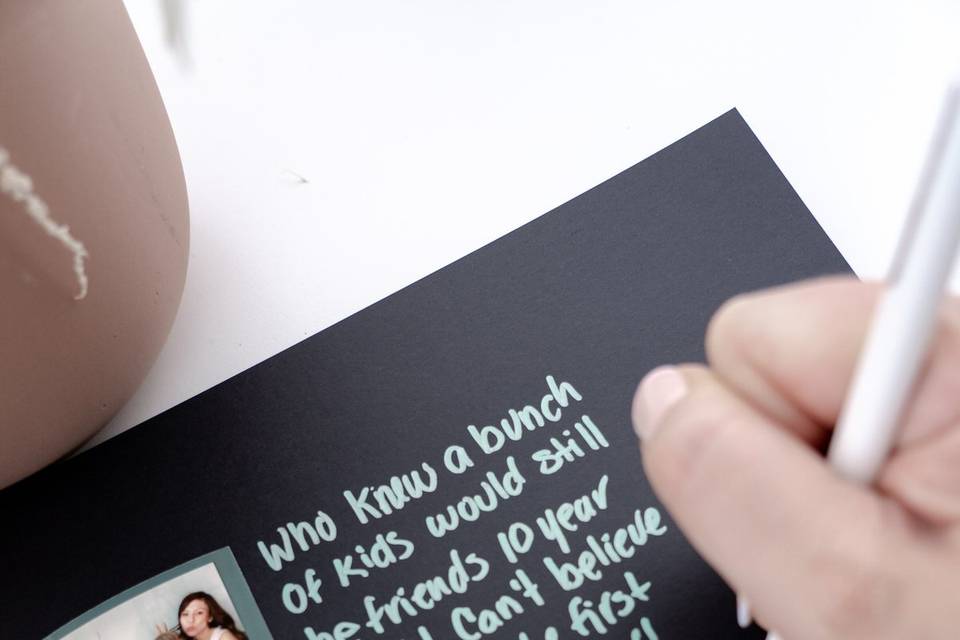 Who Knew a bunch
of kids would still
be friends 10 year
Can't believe
first